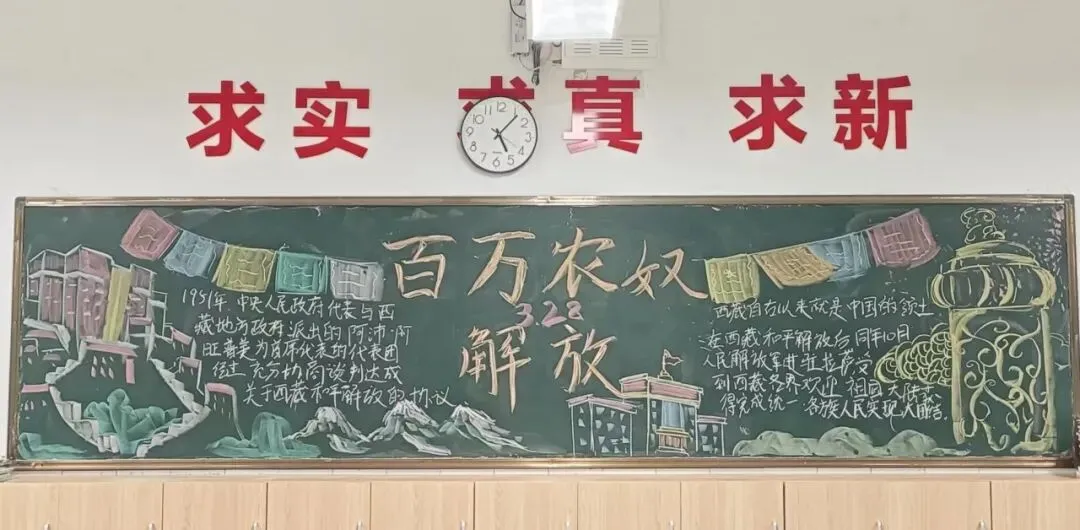 求实 求真 求新
百万农奴
328
解放
1951年,中央人民政府代表与西
藏地方政府派出的阿沛·阿
旺晋美为首席代表的代表团
经过充分协商谈判达成
关于西藏和平解放的协议.
西藏自古以来就是中国的领土
在西藏和平解放后同年10月
人民解放军进驻拉萨,受
到西藏各界欢迎 祖国大陆
得完成统一 各族人民实现大团结.